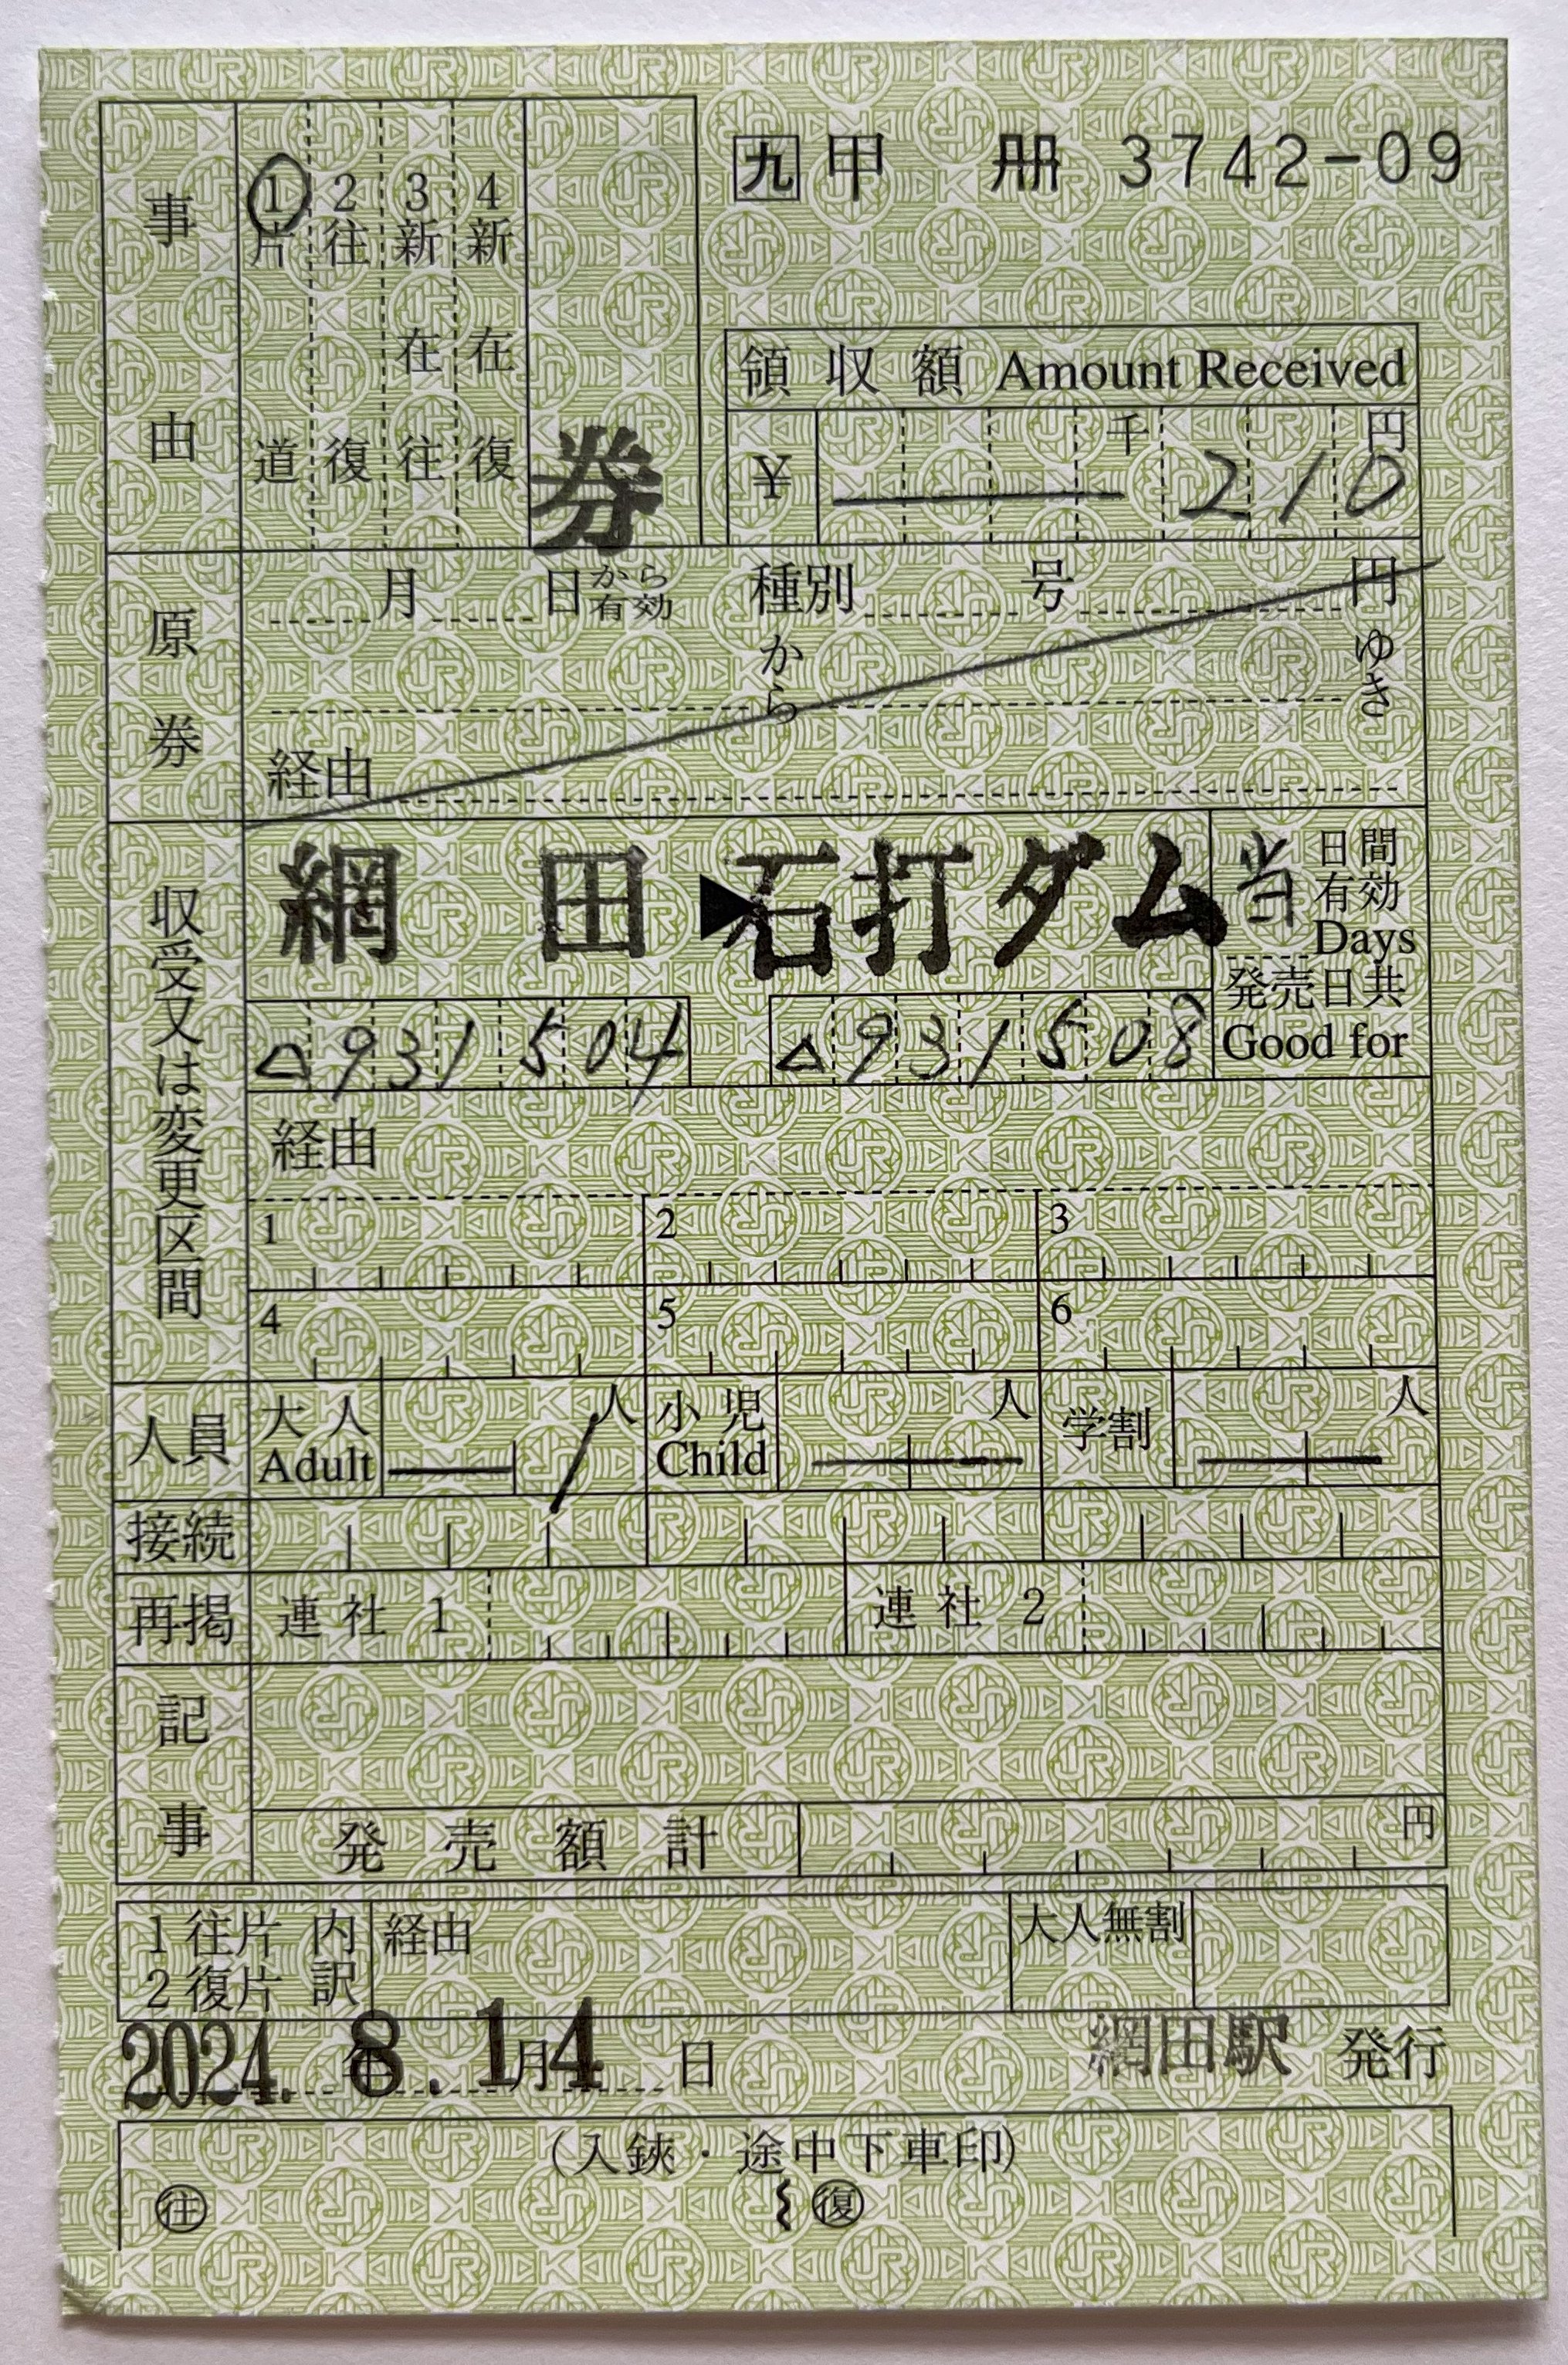 九 甲 冊 3742-09
事由
1 片道
2 往復
3 新在往
4 新在復
券
領収額 Amount Received
¥ 千 210 円
原券
月 日 から有効 種別 号 円
から ゆき
経由
収受又は変更区間
網田 ▶ 石打ダム
当 日間有効 Days
発売日共 Good for
△931504 △931508
経由
1 2 3
4 5 6
人員 大人 Adult 1 人 小児 Child 人 学割 人
接続
再掲 連社 1 連社 2
記事
発売額計 円
1 往片 内訳 経由 大人無割
2 復片
2024. 8. 14 年 月 日 網田駅 発行
(入鋏・途中下車印)
往 復